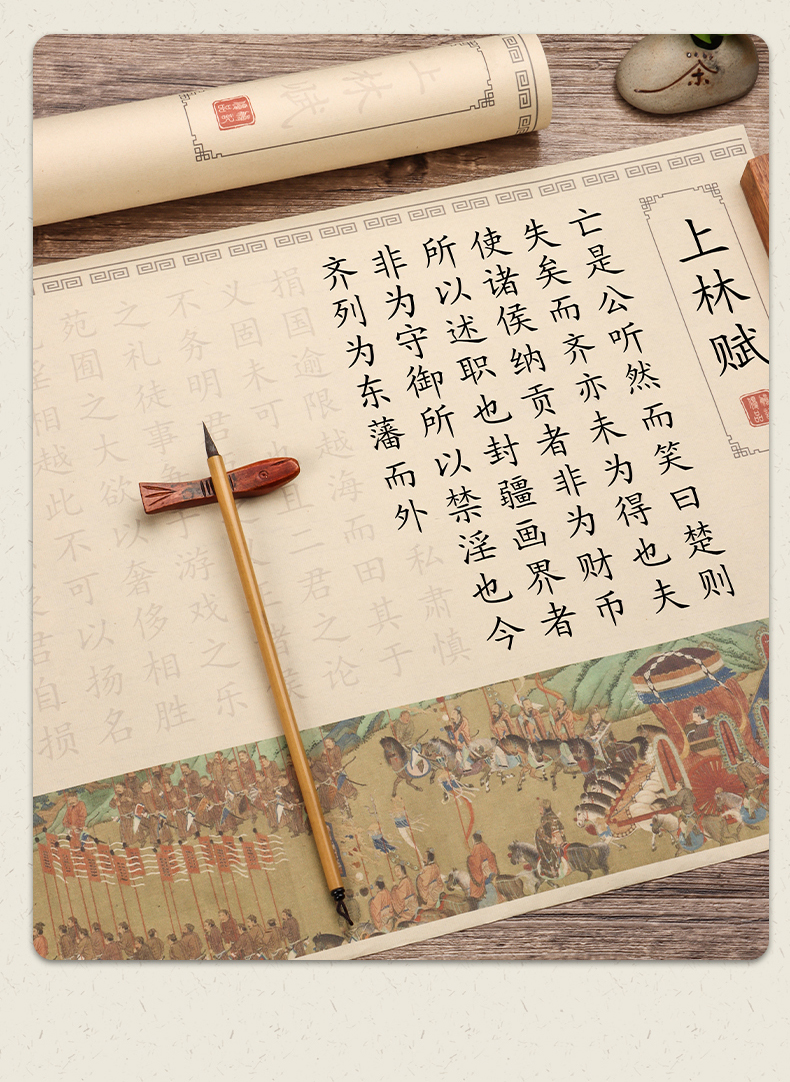 上林赋
亡是公听然而笑曰楚则
失矣而齐亦未为得也夫
使诸侯纳贡者非为财币
所以述职也封疆画界者
非为守御所以禁淫也今
齐列为东藩而外私肃慎
捐国逾限越海而田其于
义固未可也且二君之论
不务明君
侯
之礼徒事争于游戏之乐
苑囿之大欲以奢侈相胜
淫相越此不可以扬名
君自损
上林赋
茶